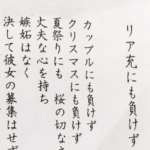 リア充にも負けず
カップルにも負けず
クリスマスにも負けず
夏祭りにも 桜の切な
丈夫な心を持ち
嫉妬はなく
決して彼女の募集はせず